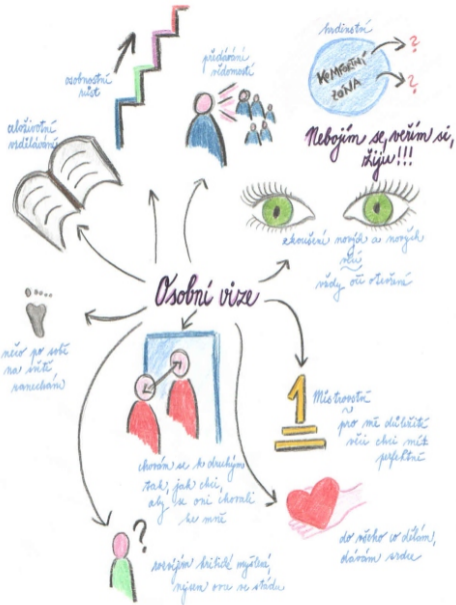 osobnostní
růst
předávání
vědomostí
hrdinství
KOMFORTNÍ
ZÓNA
?
?
celoživotní
vzdělávání
Nebojím se, věřím si,
žiju!!!
zkoušení nových a nových
věcí
vždy oči otevření
Osobní vize
něco po sobě
na světě
zanechám
1
Mistrovství
pro mě důležité
věci chci mít
perfektně
chovám se k druhým
tak, jak chci,
aby se oni chovali
ke mně
?
do všeho co dělám,
dávám srdce
rozvíjím kritické myšlení,
nejsem ovce ve stádu